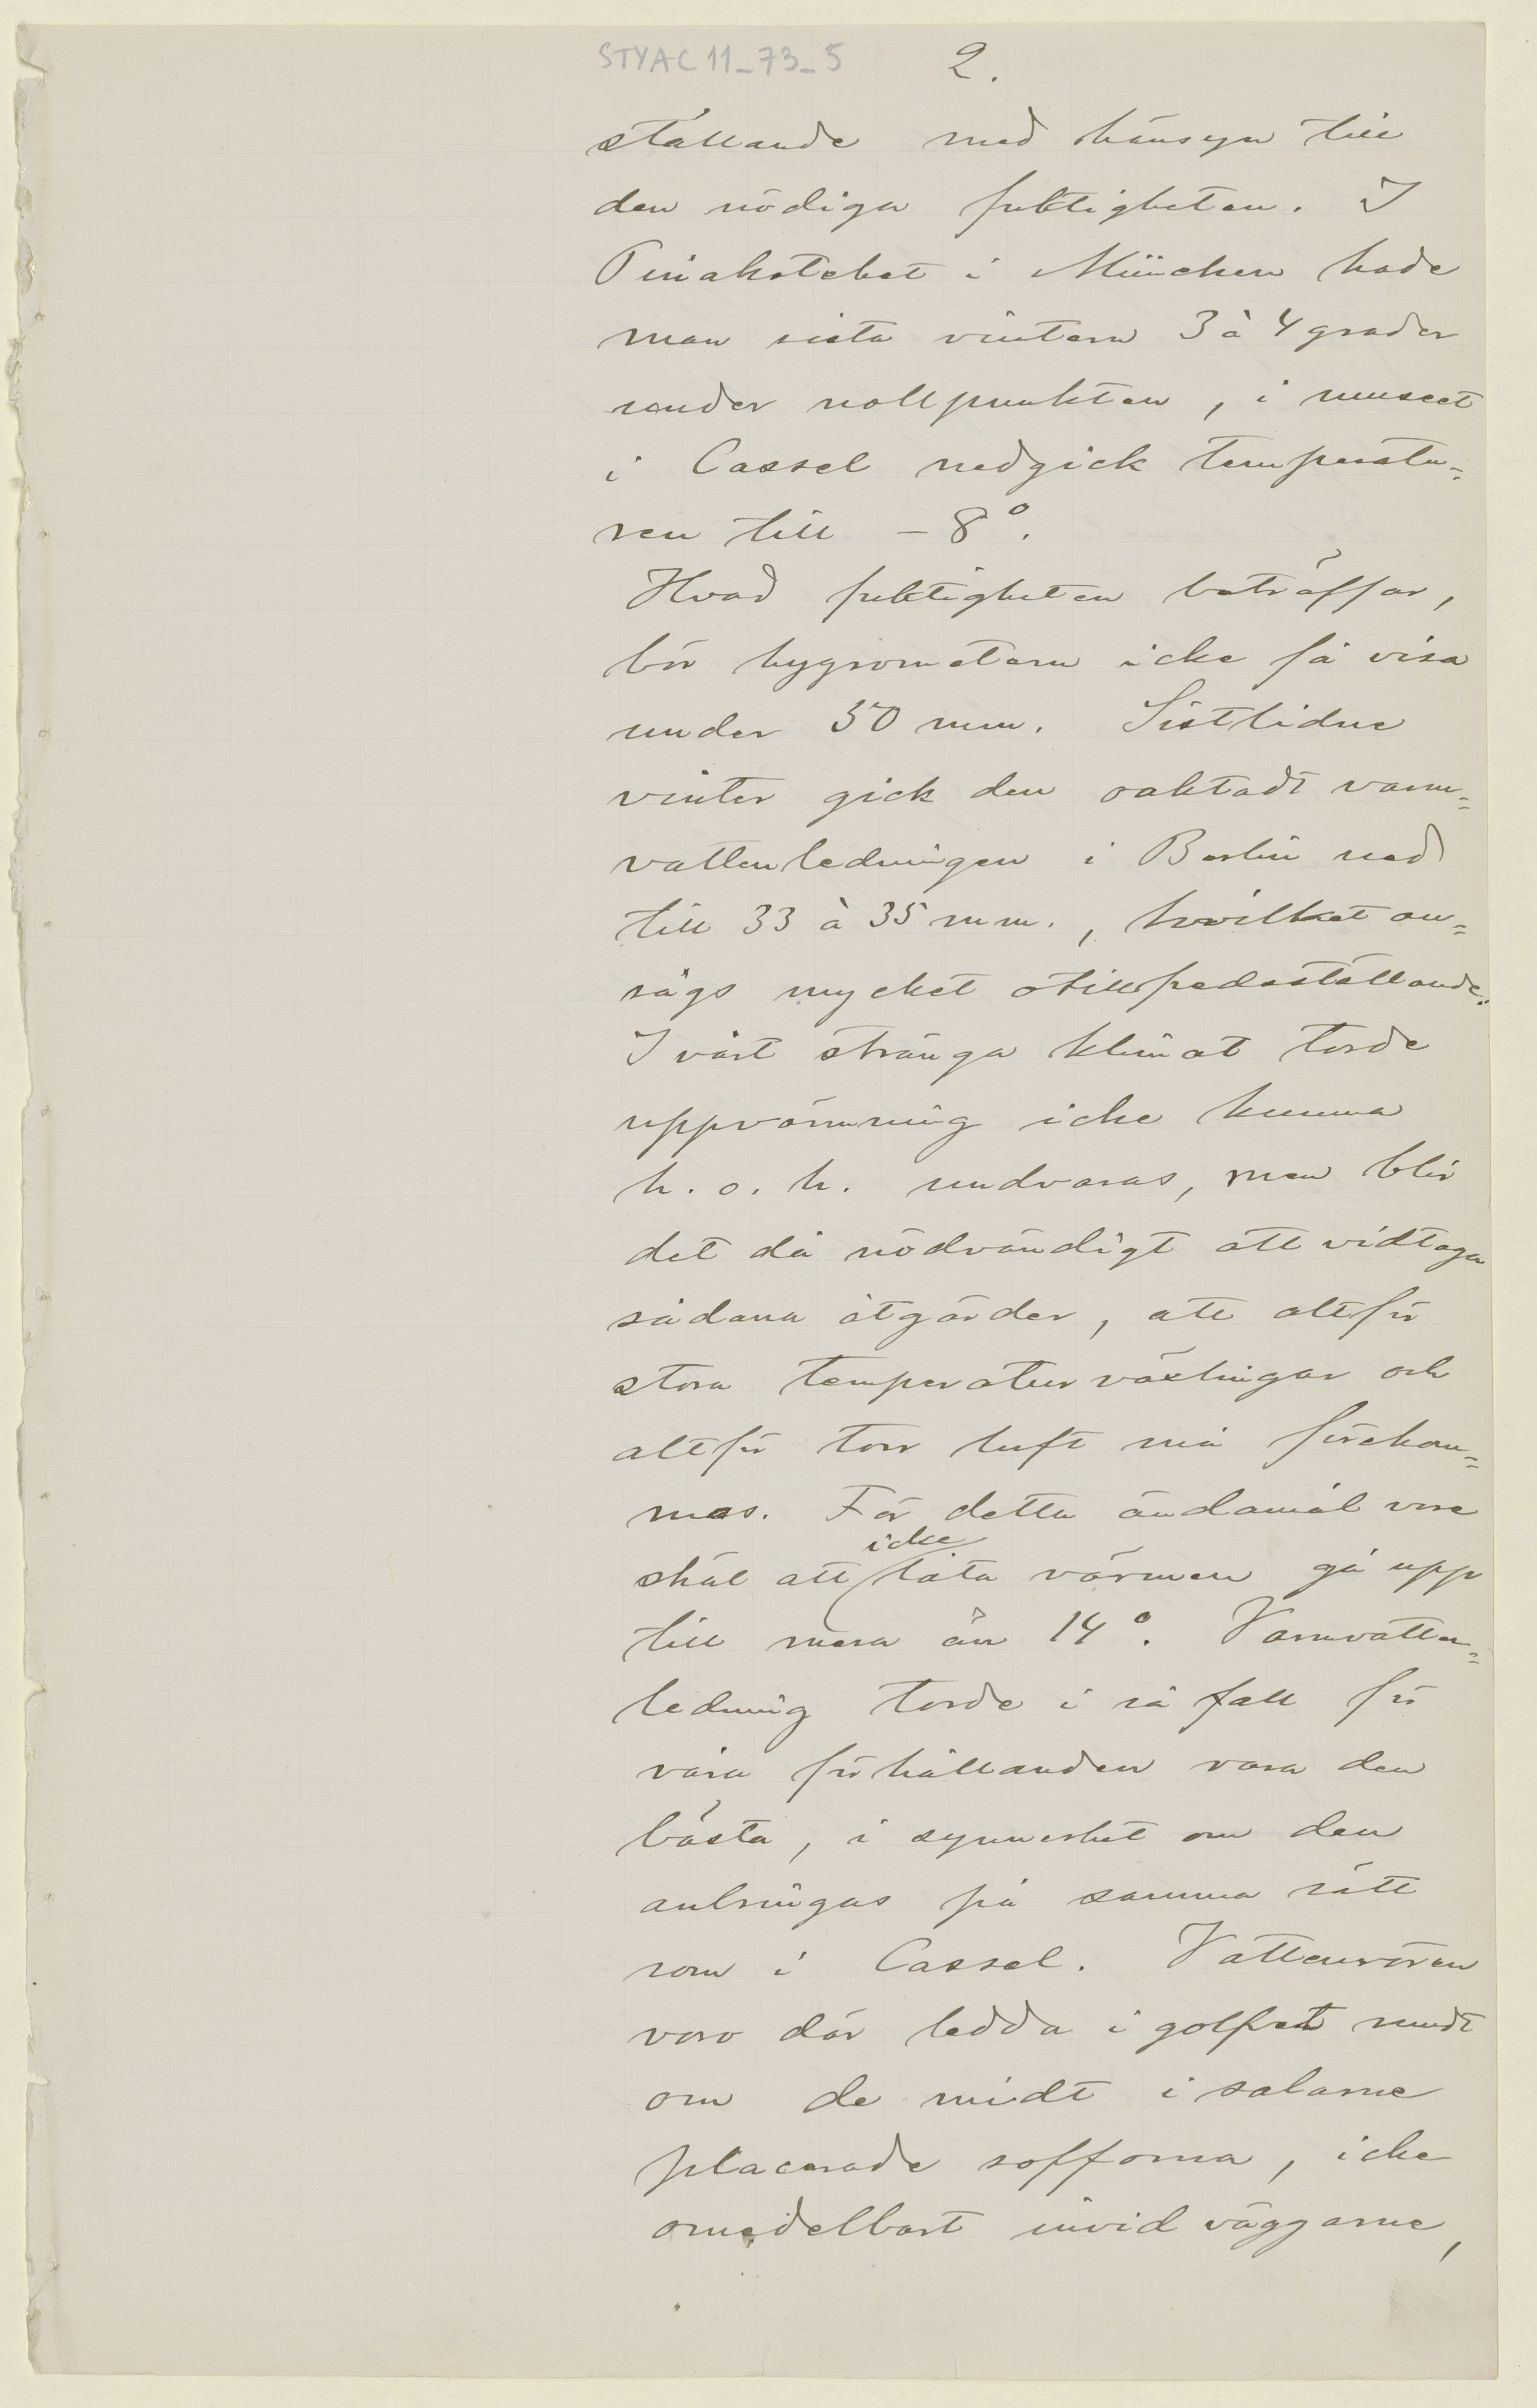 STYAC 11_73_5
2.
ställande med hänsyn till
den nödiga fuktigheten. I
Pinakoteket i München hade
man sista vintern 3 à 4 grader
under nollpunkten, i museet
i Cassel nedgick temperatu=
ren till – 8°.
Hvad fuktigheten beträffar,
bör hygrometern icke få visa
under 50 mm. Sistlidne
vinter gick den oaktadt varm=
vattenledningen i Berlin ned
till 33 à 35 mm., hvilket an=
sågs mycket otillfredsställande.
I vårt stränga klimat torde
uppvärmning icke kunna
h. o. h. undvaras, men blir
det då nödvändigt att vidtaga
sådana åtgärder, att altför
stora temperaturväxlingar och
altför torr luft må förekom=
mas. För detta ändamål vore
icke
skäl att låta värmen gå upp
till mera än 14°. Varmvatten=
ledning torde i så fall för
våra förhållanden vara den
bästa, i synnerhet om den
anbringas på samma sätt
som i Cassel. Vattenrören
voro där ledda i golfvet rundt
om de midt i salarne
placerade sofforna, icke
omedelbart invid väggarne,